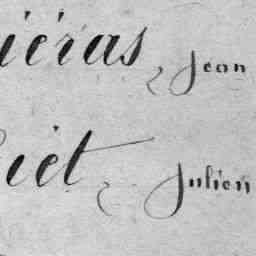 iéras, Jean
iet, Julien